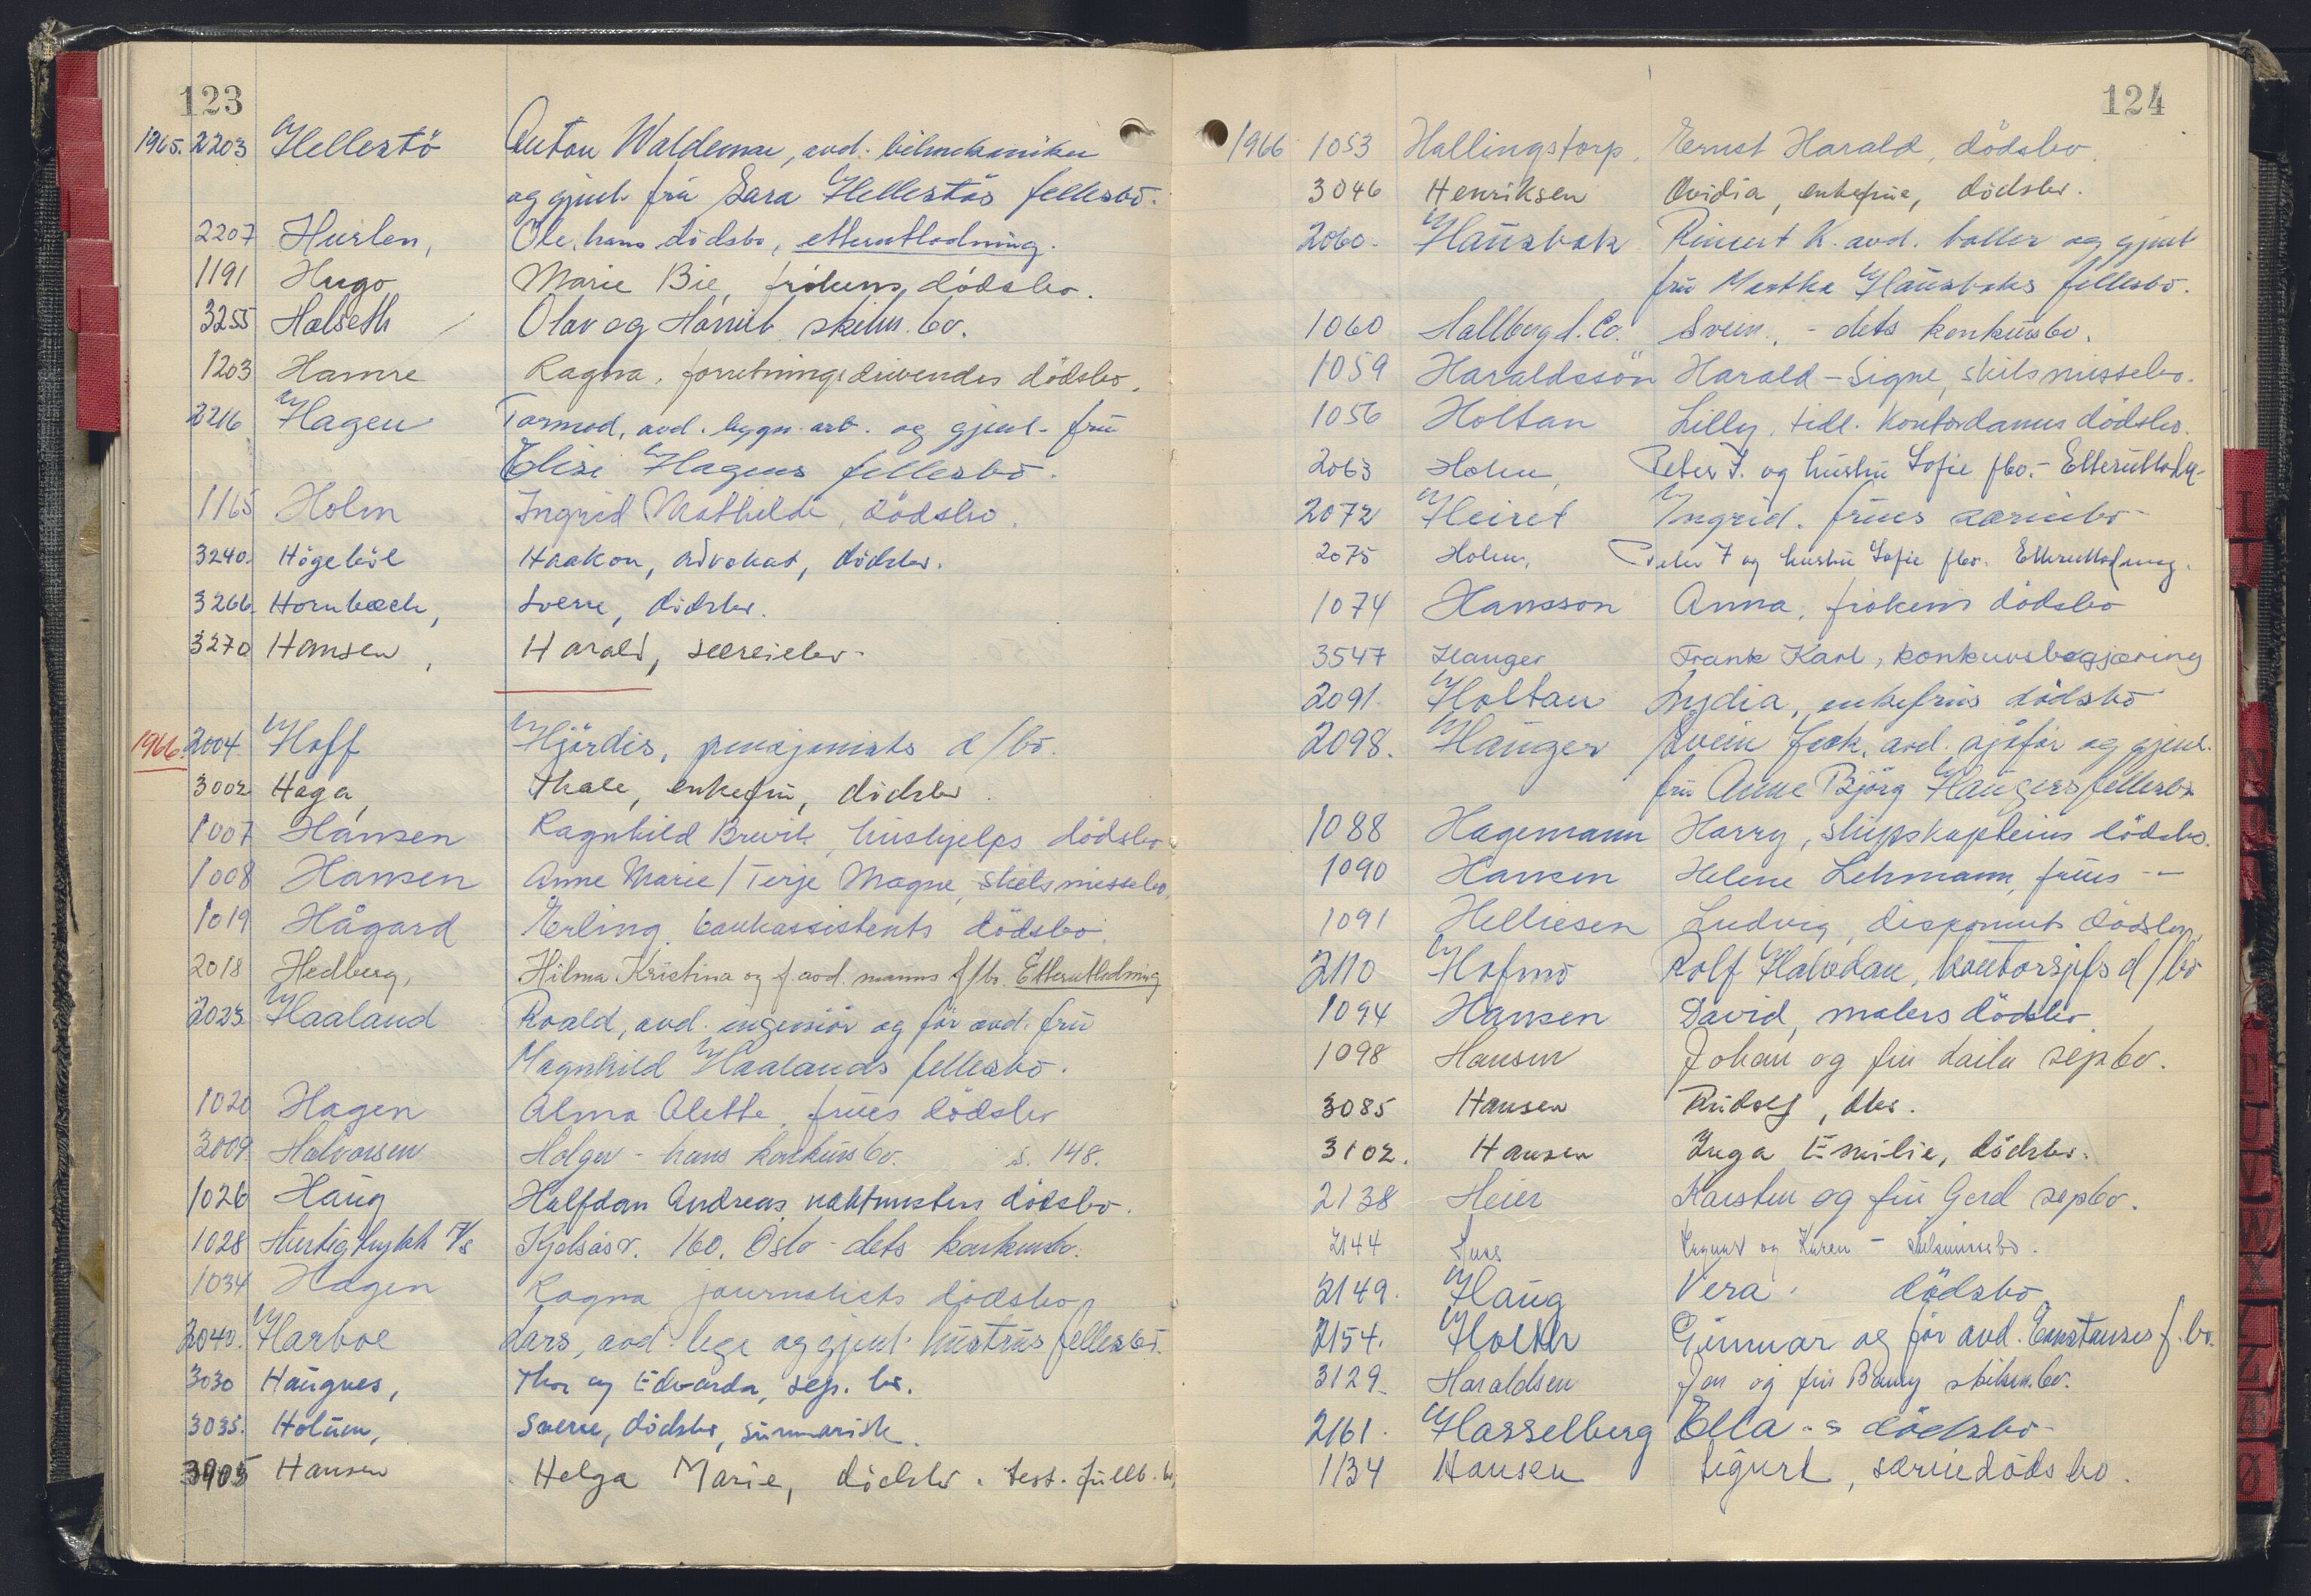 123
1965. 2203 Hellestö Anton Waldemar, avd. bilmekaniker
og gjenl. frü Sara Hellestös fellesbo.
2207 Hurlen, Ole, hans dödsbo, etterutlodning.
1191 Hugo Marie Bie, frökens dödsbo.
3255 Halseth Olav og skilsm. bo.
1203 Hamre Ragna, forretningsdrivendes dödsbo.
2216 Hagen Tormod, avd. bygn. arb. og gjenl. frü
Elise Hagens fellesbo.
1165 Holm Ingrid Mathilde, dödsbo.
3240. Högeböl Haakon, advokat, dödsbo.
3266. Hornbæck, Sverre, dödsbo.
3270 Hansen, Harald, særeiebo.
1966. 2004. Hoff Hjördis, pensjonists d/bo.
3002 Haga, Thale, enkefrü, dödsbo.
1007 Hansen Ragnhild Brevik, hüshjelps dödsbo
1008 Hansen Anne Marie / Terje Magne, skilsmissebo.
1019 Hågard Erling, bankassistents dödsbo.
2018 Hedberg, Hilma Kristina og f. avd. manns f/bo. Etterutlodning
2023 Haaland Roald, avd. ingeniör og för avd. frü
Magnhild Haalands fellesbo.
1020 Hagen Alma Alette, früs dödsbo
3009 Halvorsen Holger - hans konkürsbo. s. 148.
1026 Haüg Halfdan Andreas vaktmesters dödsbo.
1028 Hurtigtrykk A/s Kjelsåsv. 160. Oslo - dets konkursbo.
1034 Hagen Ragna journalists dödsbo
2040. Harboe Lars, avd. lege og gjenl. hüstrüs fellesbo.
3030 Haügnes, Thor og Edvarda, sep. bo.
3035. Holüm, Sverre, dödsbo, sümmarisk.
Hansen Helga Marie, dödsbo. test. füllb. bo.
124
1966 1053 Hallingstorp, Ernst Harald, dödsbo.
3046 Henriksen Ovidia, enkefrüe, dödsbo.
2060. Haüsbak Rineert K. avd. baller og gjenl
frü Martha Haüsbaks fellesbo.
1060 Hallberg d. Co. Svein, - dets konkürsbo.
1059 Haraldssön Harald - Signe, skilsmissebo.
1056 Holtan Lilly, tidl. kontordames dödsbo.
2063 Holm, Peter F. og hüstrü Sofie fbo. - Etterutlodn.
2072 Heiret Ingrid. früs særeiebo
2075 Holm, Peter F og hüstrü Sofie fbo. Etterutlodning.
1074 Hansson Anna, frökens dödsbo
3547 Hauger Frank Karl, konkursbegjæring
2091. Holtan Lydia, enkefrüs dödsbo
2098. Haüger Svein Jack, avd. sjåför og gjenl.
frü Anne Björg Haügers fellesbo
1088 Hagemann Harry, skipskapteins dödsbo.
1090 Hansen Helene Lehmann, früs - " -
1091 Helliesen Ludvig, disponents dödsbo,
2110 Hofmo Rolf Halvdan, kontorsjefs d/bo
1094 Hansen David, malers dödsbo.
1098 Hansen Johan og frü Laila sepbo.
3085 Hansen Rüdolf, dbo.
3102. Hansen Inga Emilie, dödsbo.
2138 Heier Karsten og frü Gerd sepbo.
2144 og Karen - skilsmissebo.
2149. Haüg Vera. dödsbo
2154. Holth Günnar og för avd. Constanses f. bo.
3129. Haraldsen Jan og frü skilsm.bo.
2161. Hasselberg Ella - s dödsbo
1134 Hansen Sigurd, særeiedödsbo.
I
J
N
T
U
V
W
X
Y
Z
Æ
Ø